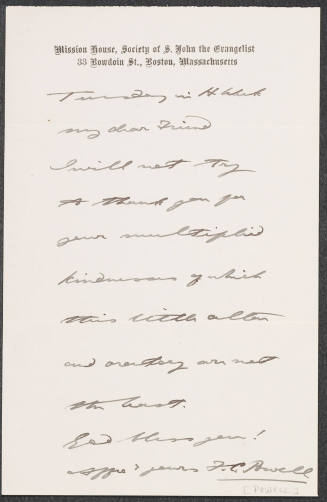 Mission House, Society of S. John the Evangelist
33 Bowdoin St., Boston, Massachusetts
Tuesday in H. Week
My dear Friend
I will not try
to thank you for
your multiplied
kindnesses of which
this little altar
and oratory are not
the least.
God bless you!
Affte yours F. C. Powell
[POWELL]